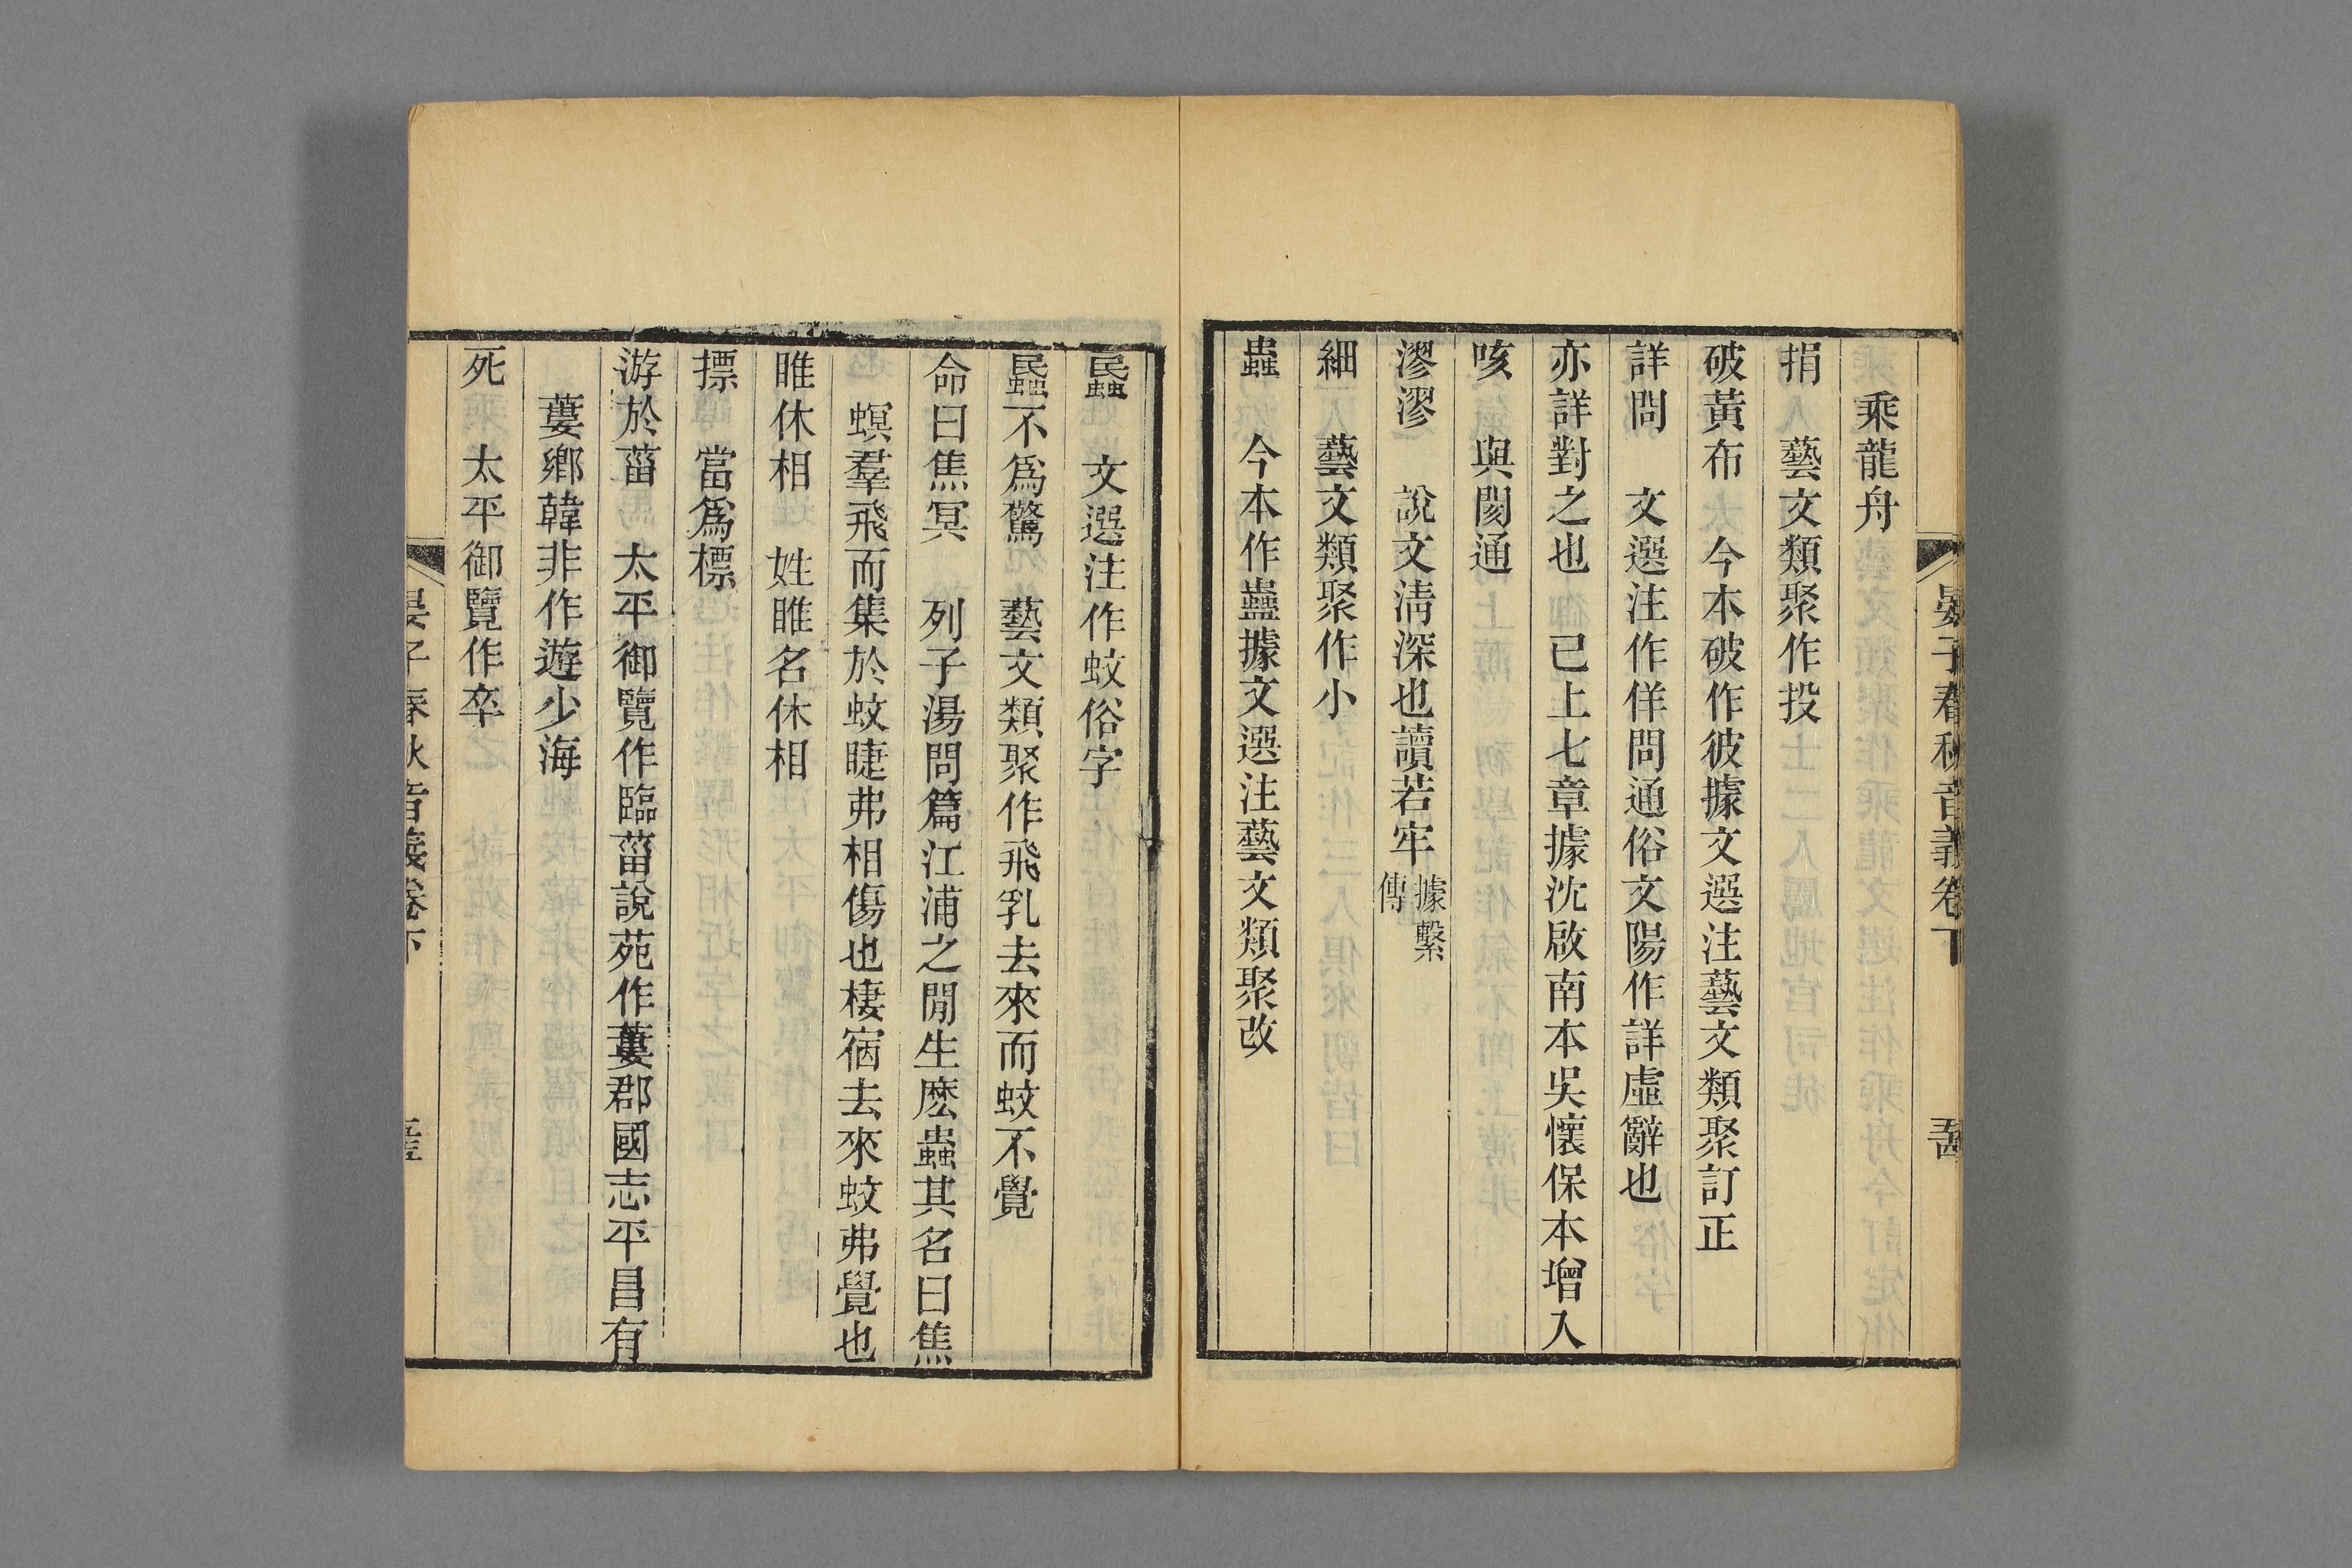 晏子春秋音義卷下
乘龍舟
捐　藝文類聚作投
破黃布　今本破作彼據文選注藝文類聚訂正
詳問　文選注作佯問通俗文陽作詳虛辭也
亦詳對之也　已上七章據沈啟南本吳懷保本增入
咳　與閡通
漻漻　說文清深也讀若牢據繫傳
細　藝文類聚作小
蟲　今本作蠱據文選注藝文類聚改
蟁　文選注作蚊俗字
蟁不爲驚　藝文類聚作飛乳去來而蚊不覺
命曰焦冥　列子湯問篇江浦之閒生麽蟲其名曰焦
螟羣飛而集於蚊睫弗相傷也棲宿去來蚊弗覺也
睢休相　姓睢名休相
摽　當爲標
游於菑　太平御覽作臨菑說苑作蔞郡國志平昌有
蔞鄉韓非作遊少海
死　太平御覽作卒
晏子春秋音義卷下